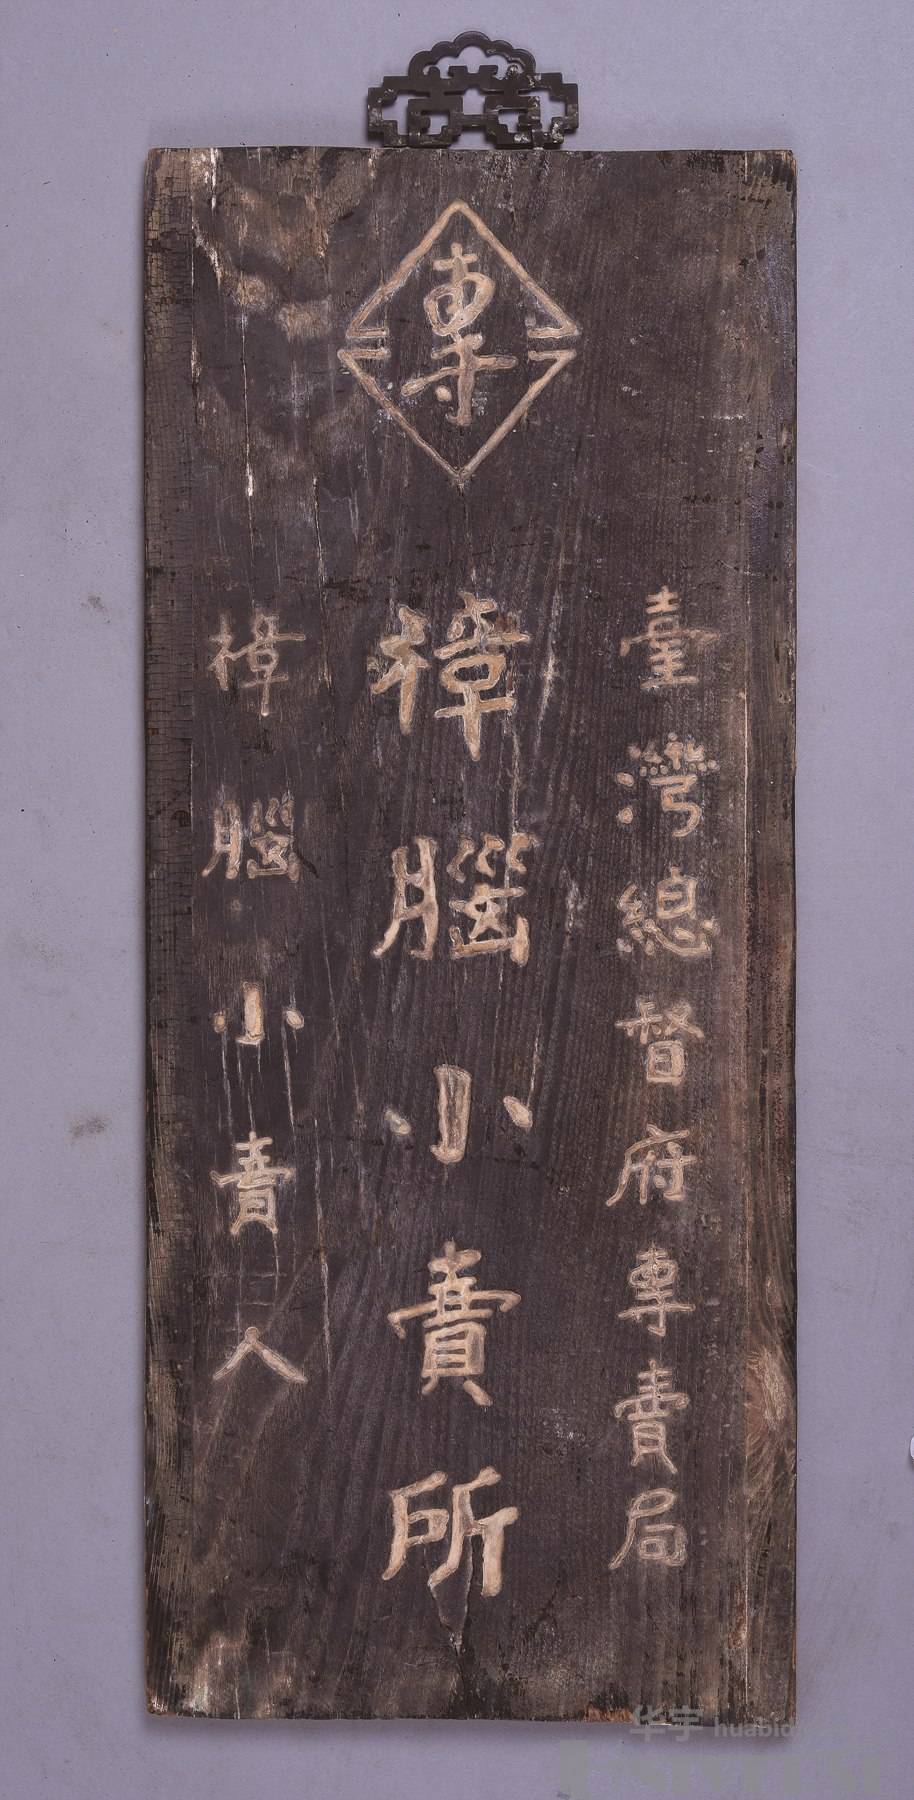 專
臺灣總督府專賣局
樟腦小賣所
樟腦小賣人
华宇